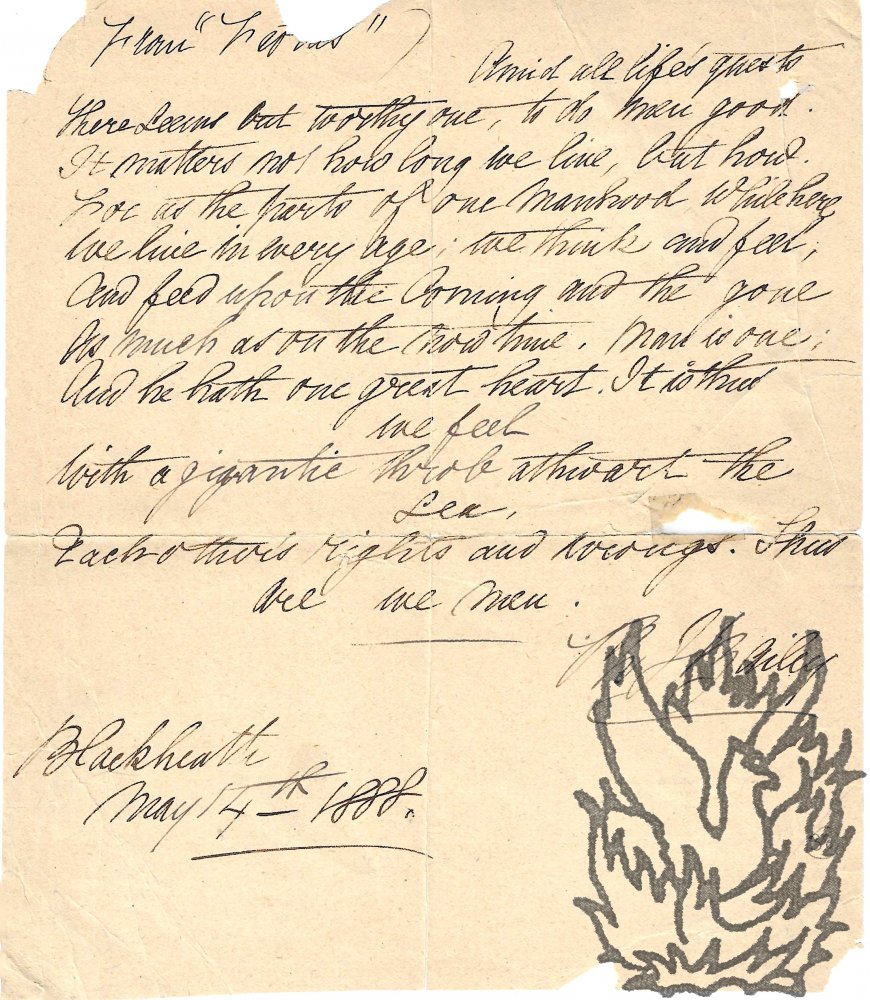 From "Festus")
Amid all life's quests
There seems but worthy one, to do men good.
It matters not how long we live, but how.
For as the parts of one manhood while here
We live in every age; we think and feel,
And feed upon the coming and the gone
As much as on the now time. Man is one;
And he hath one great heart. It is thus
we feel
With a gigantic throb athwart the
sea,
Each others rights and wrongs. Thus
are we men.
Ph J Bailey
Blackheath
May 14th 1888.